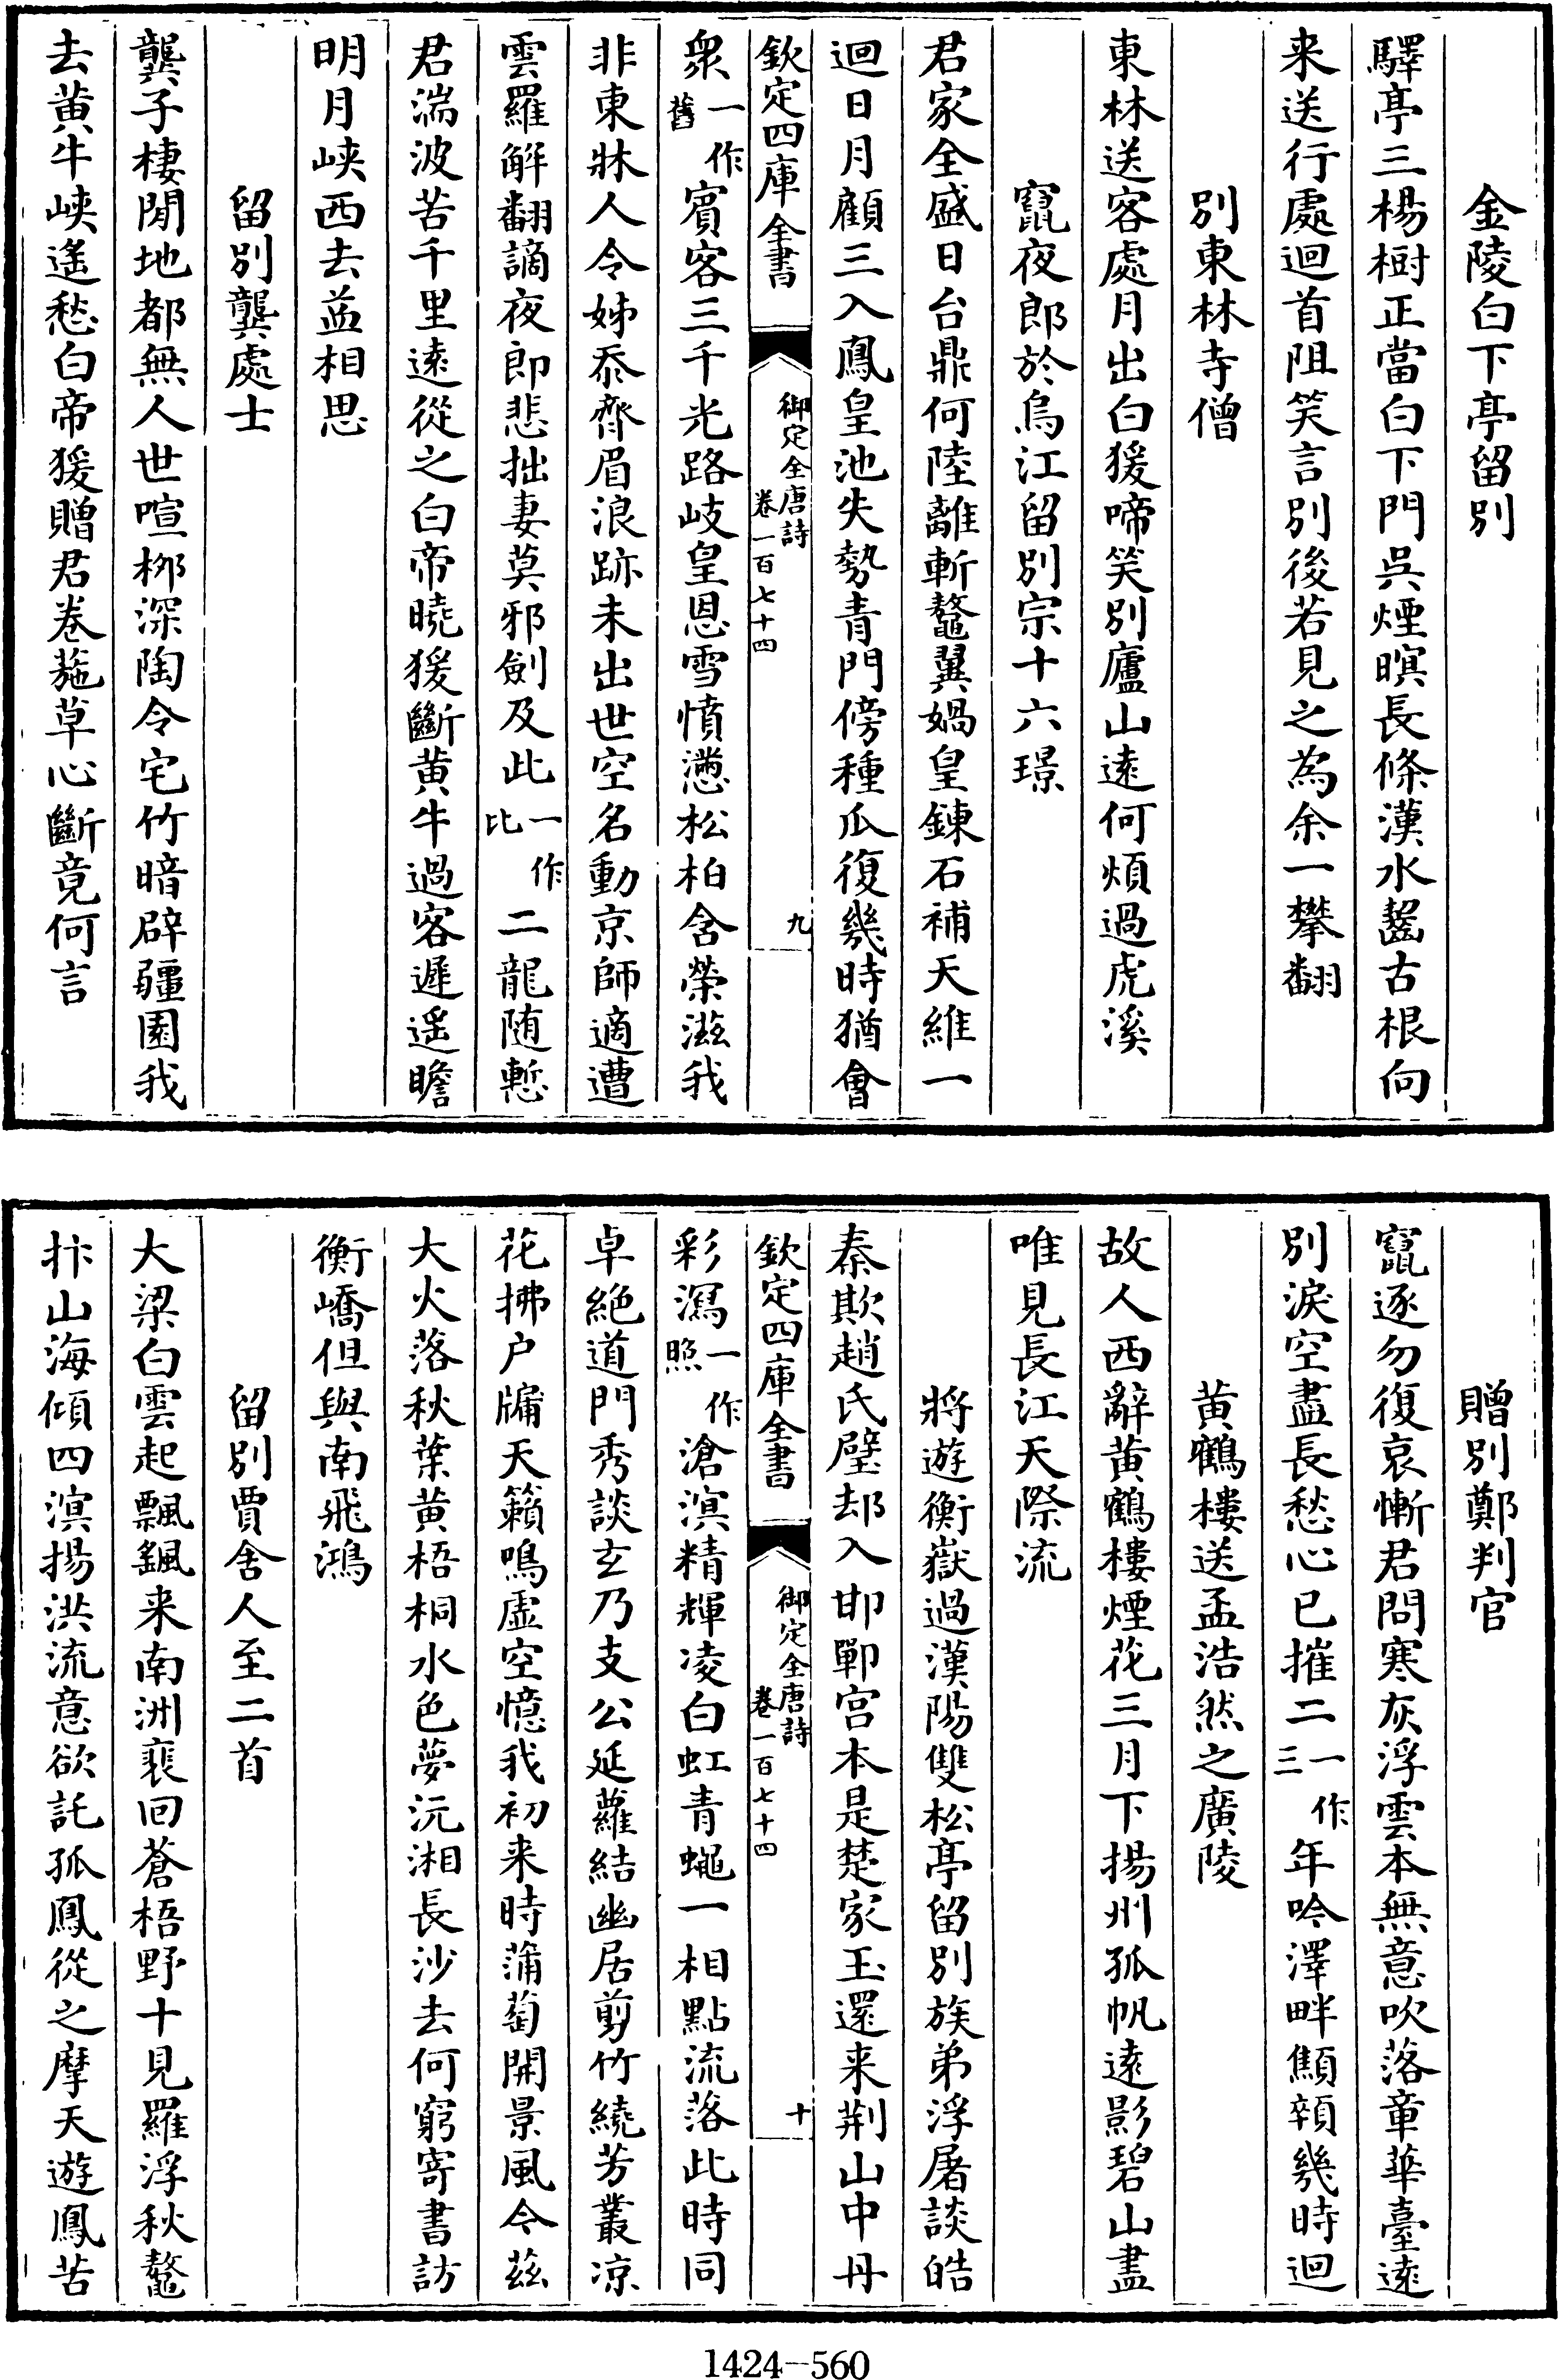 金陵白下亭留別
驛亭三楊樹正當白下門呉煙暝長條漢水齧古根向
来送行處迴首阻笑言別後若見之為余一攀翻
別東林寺僧
東林送客處月出白猨啼笑別廬山逺何煩過虎溪
竄夜郎於烏江留別宗十六璟
君家全盛日台鼎何陸離斬鼇翼媧皇鍊石補天維一
迴日月顧三入鳳皇池失勢青門傍種瓜復幾時猶會
欽定四庫全書
御定全唐詩
卷一百七十四
九
衆一作舊賓客三千光路岐皇恩雪憤懣松柏含榮滋我
非東牀人令姊忝齊眉浪跡未出世空名動京師適遭
雲羅解翻謫夜郎悲拙妻莫邪劍及此一作比二龍随慙
君湍波苦千里逺從之白帝曉猨斷黄牛過客遲遥瞻
明月峽西去益相思
留別龔處士
龔子棲閒地都無人世喧栁深陶令宅竹暗辟疆園我
去黄牛峽遙愁白帝猨贈君卷葹草心斷竟何言
贈別鄭判官
竄逐勿復哀慚君問寒灰浮雲本無意吹落章華臺逺
別淚空盡長愁心已摧二一作三年吟澤畔顦顇幾時迴
黄鶴樓送孟浩然之廣陵
故人西辭黄鶴樓煙花三月下揚州孤帆逺影碧山盡
唯見長江天際流
將遊衡嶽過漢陽雙松亭留別族弟浮屠談皓
秦欺趙氏璧却入邯鄲宫本是楚家玉還来荆山中丹
欽定四庫全書
御定全唐詩
卷一百七十四
十
彩瀉一作照滄溟精輝凌白虹青蠅一相點流落此時同
卓絶道門秀談𤣥乃支公延蘿結幽居剪竹繞芳叢凉
花拂户牖天籟鳴虚空憶我初来時蒲萄開景風今兹
大火落秋葉黄梧桐水色夢沅湘長沙去何窮寄書訪
衡嶠但與南飛鴻
留別賈舍人至二首
大梁白雲起飄颻来南洲裵回蒼梧野十見羅浮秋鼇
抃山海傾四溟揚洪流意欲託孤鳳從之摩天遊鳳苦
1424-560